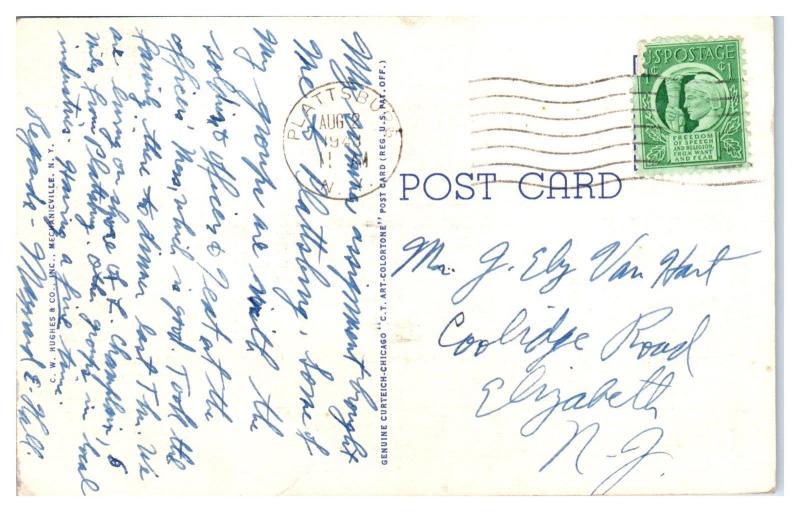 My summer assignment brought
me to Plattsburg, some of
my groups are with the
soldiers, officers & rest at the
officers' Mess, which is good. Took the
family there to dinner last Thu. We
are living on shore of L. Champlain, 6
miles from Plattsburg. Other groups in local
industries. Having a fine time.
Regards - Maynard E. Hall.
C. W. HUGHES & CO., INC., MECHANICVILLE, N. Y.
GENUINE CURTEICH-CHICAGO "C. T. ART-COLORTONE" POST CARD (REG. U. S. PAT. OFF.)
PLATTSBURG
AUG 2
1943
N. Y.
U.S. POSTAGE
1¢
FREEDOM
OF SPEECH
AND RELIGION,
FROM WANT
AND FEAR
POST CARD
Mr. J. Ely Van Hart
Coolidge Road
Elizabeth
N. J.